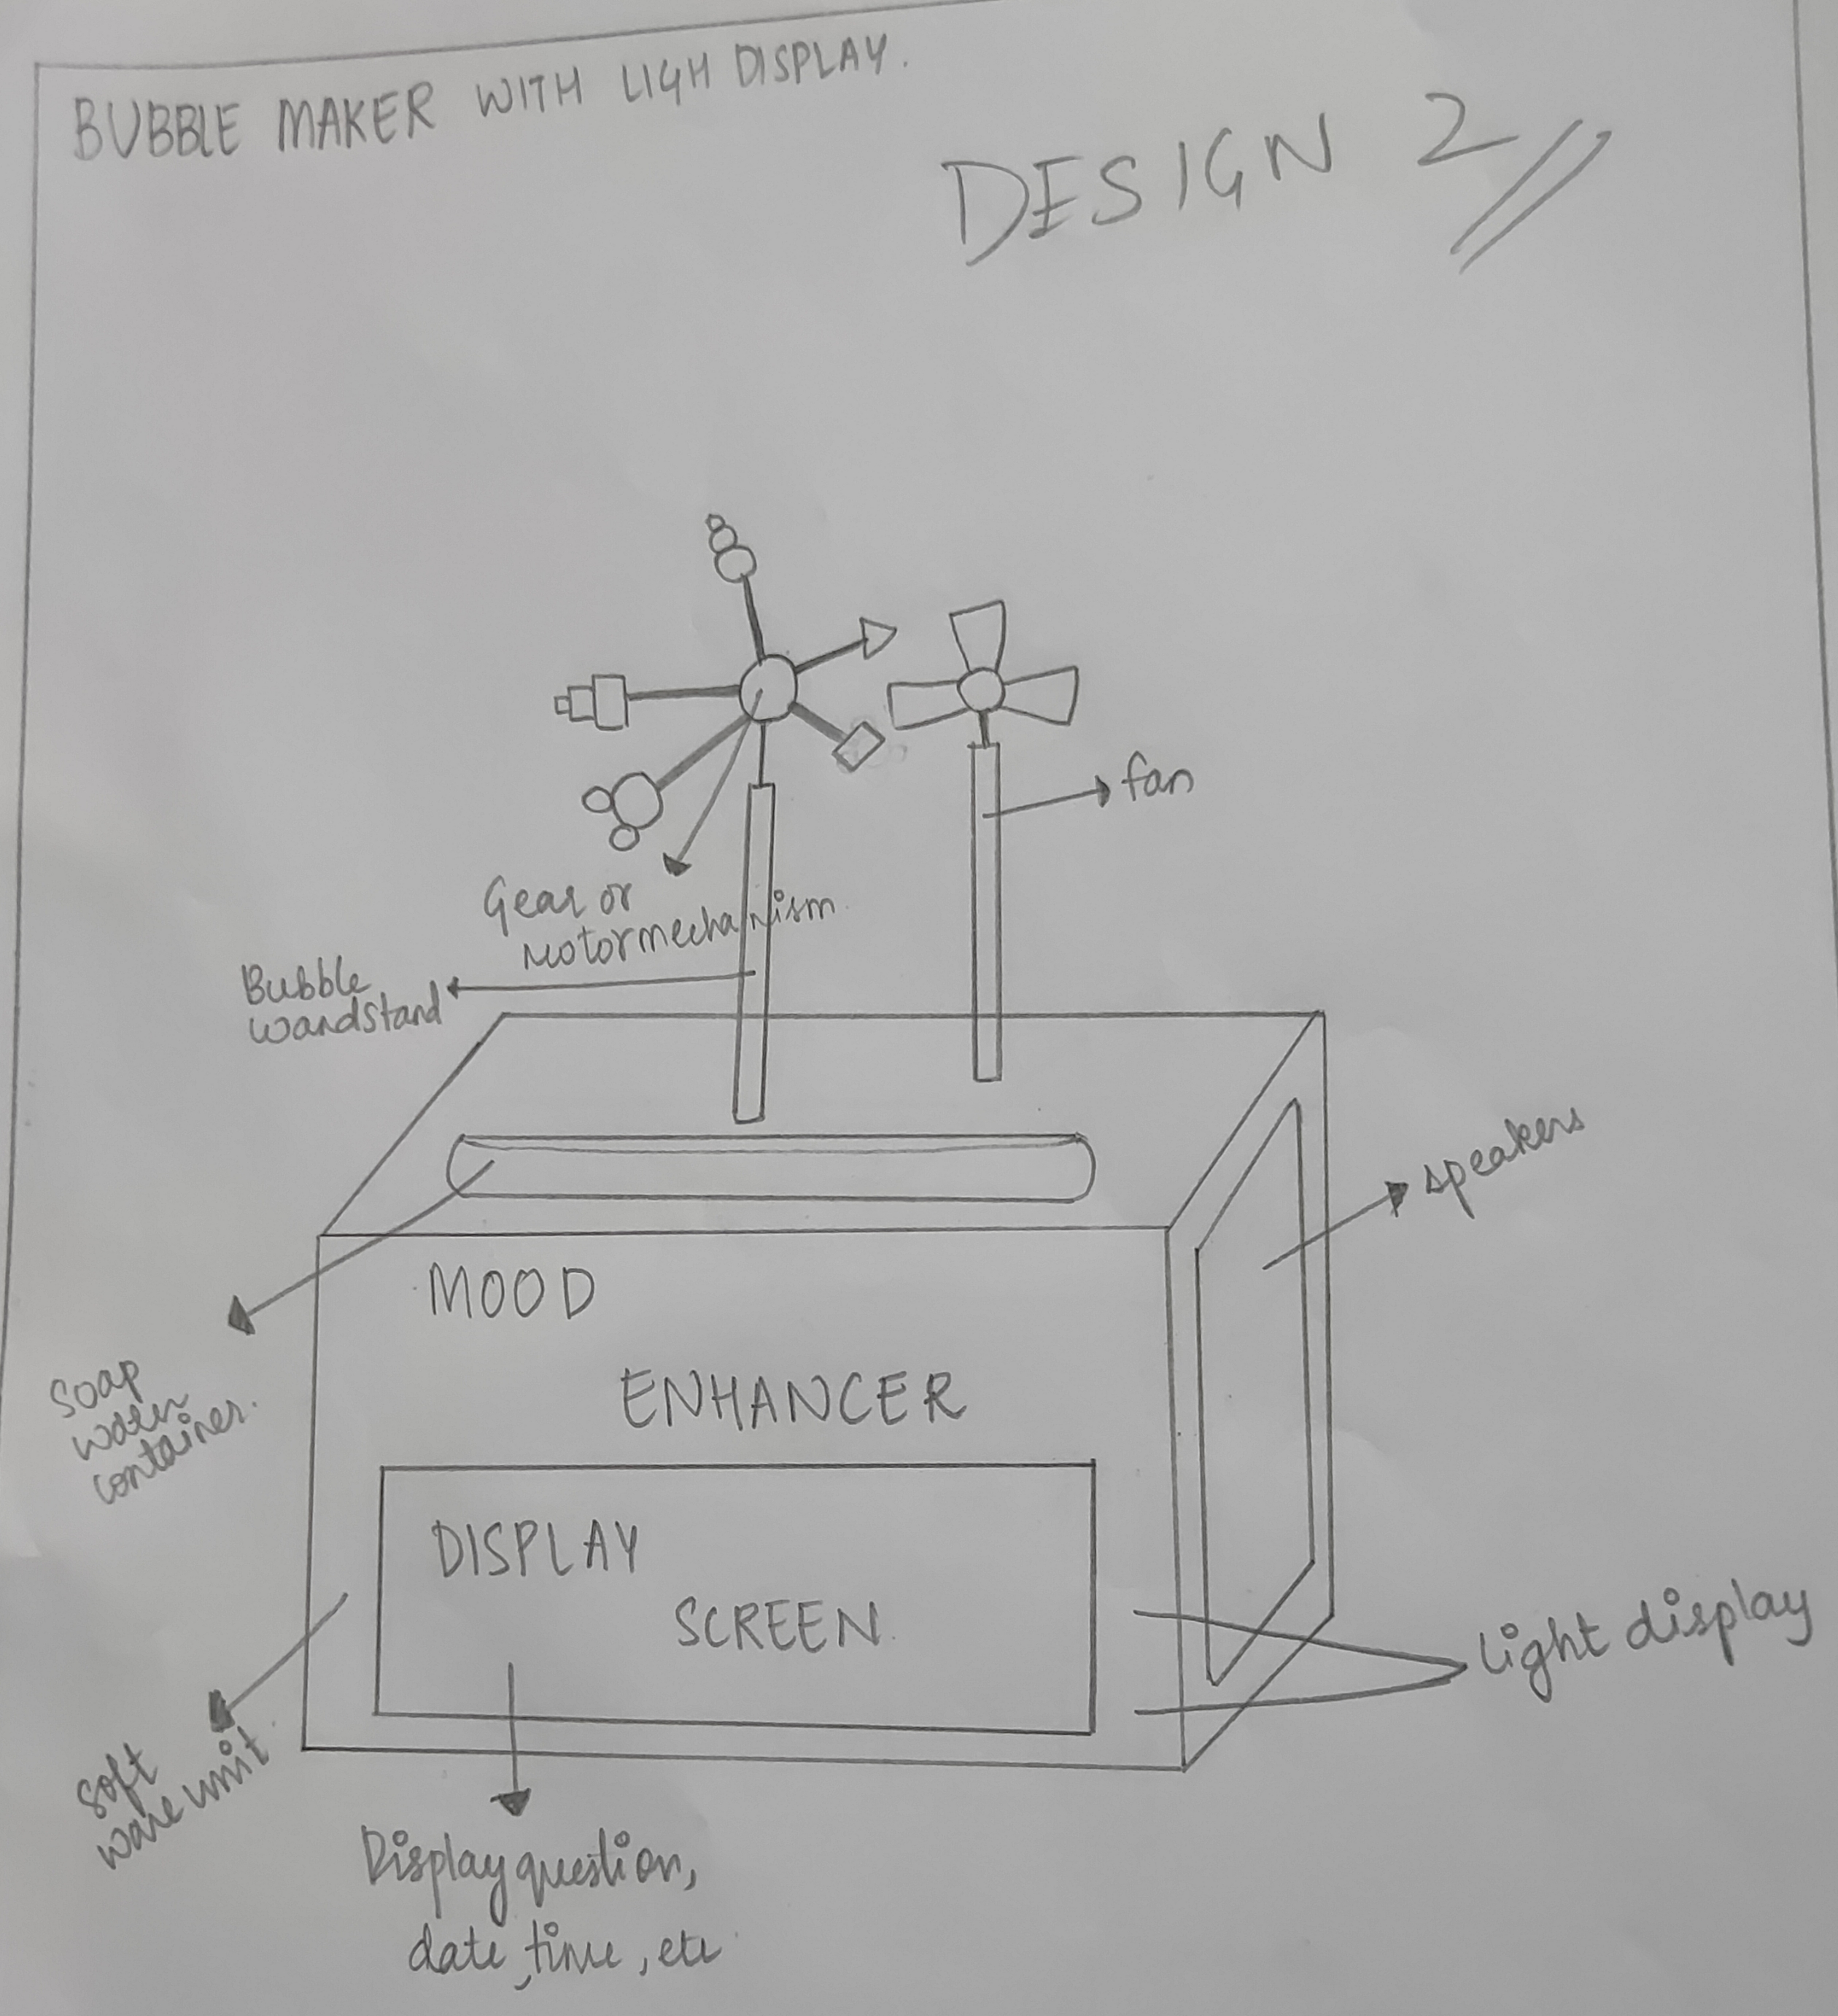 BUBBLE MAKER WITH LIGH DISPLAY.
DESIGN 2
fan
Gear or
Motormechanism
Bubble
wandstand
speakers
MOOD
ENHANCER
soap
water
container.
DISPLAY
SCREEN.
light display
soft
ware unit
Display question,
date, time, etc